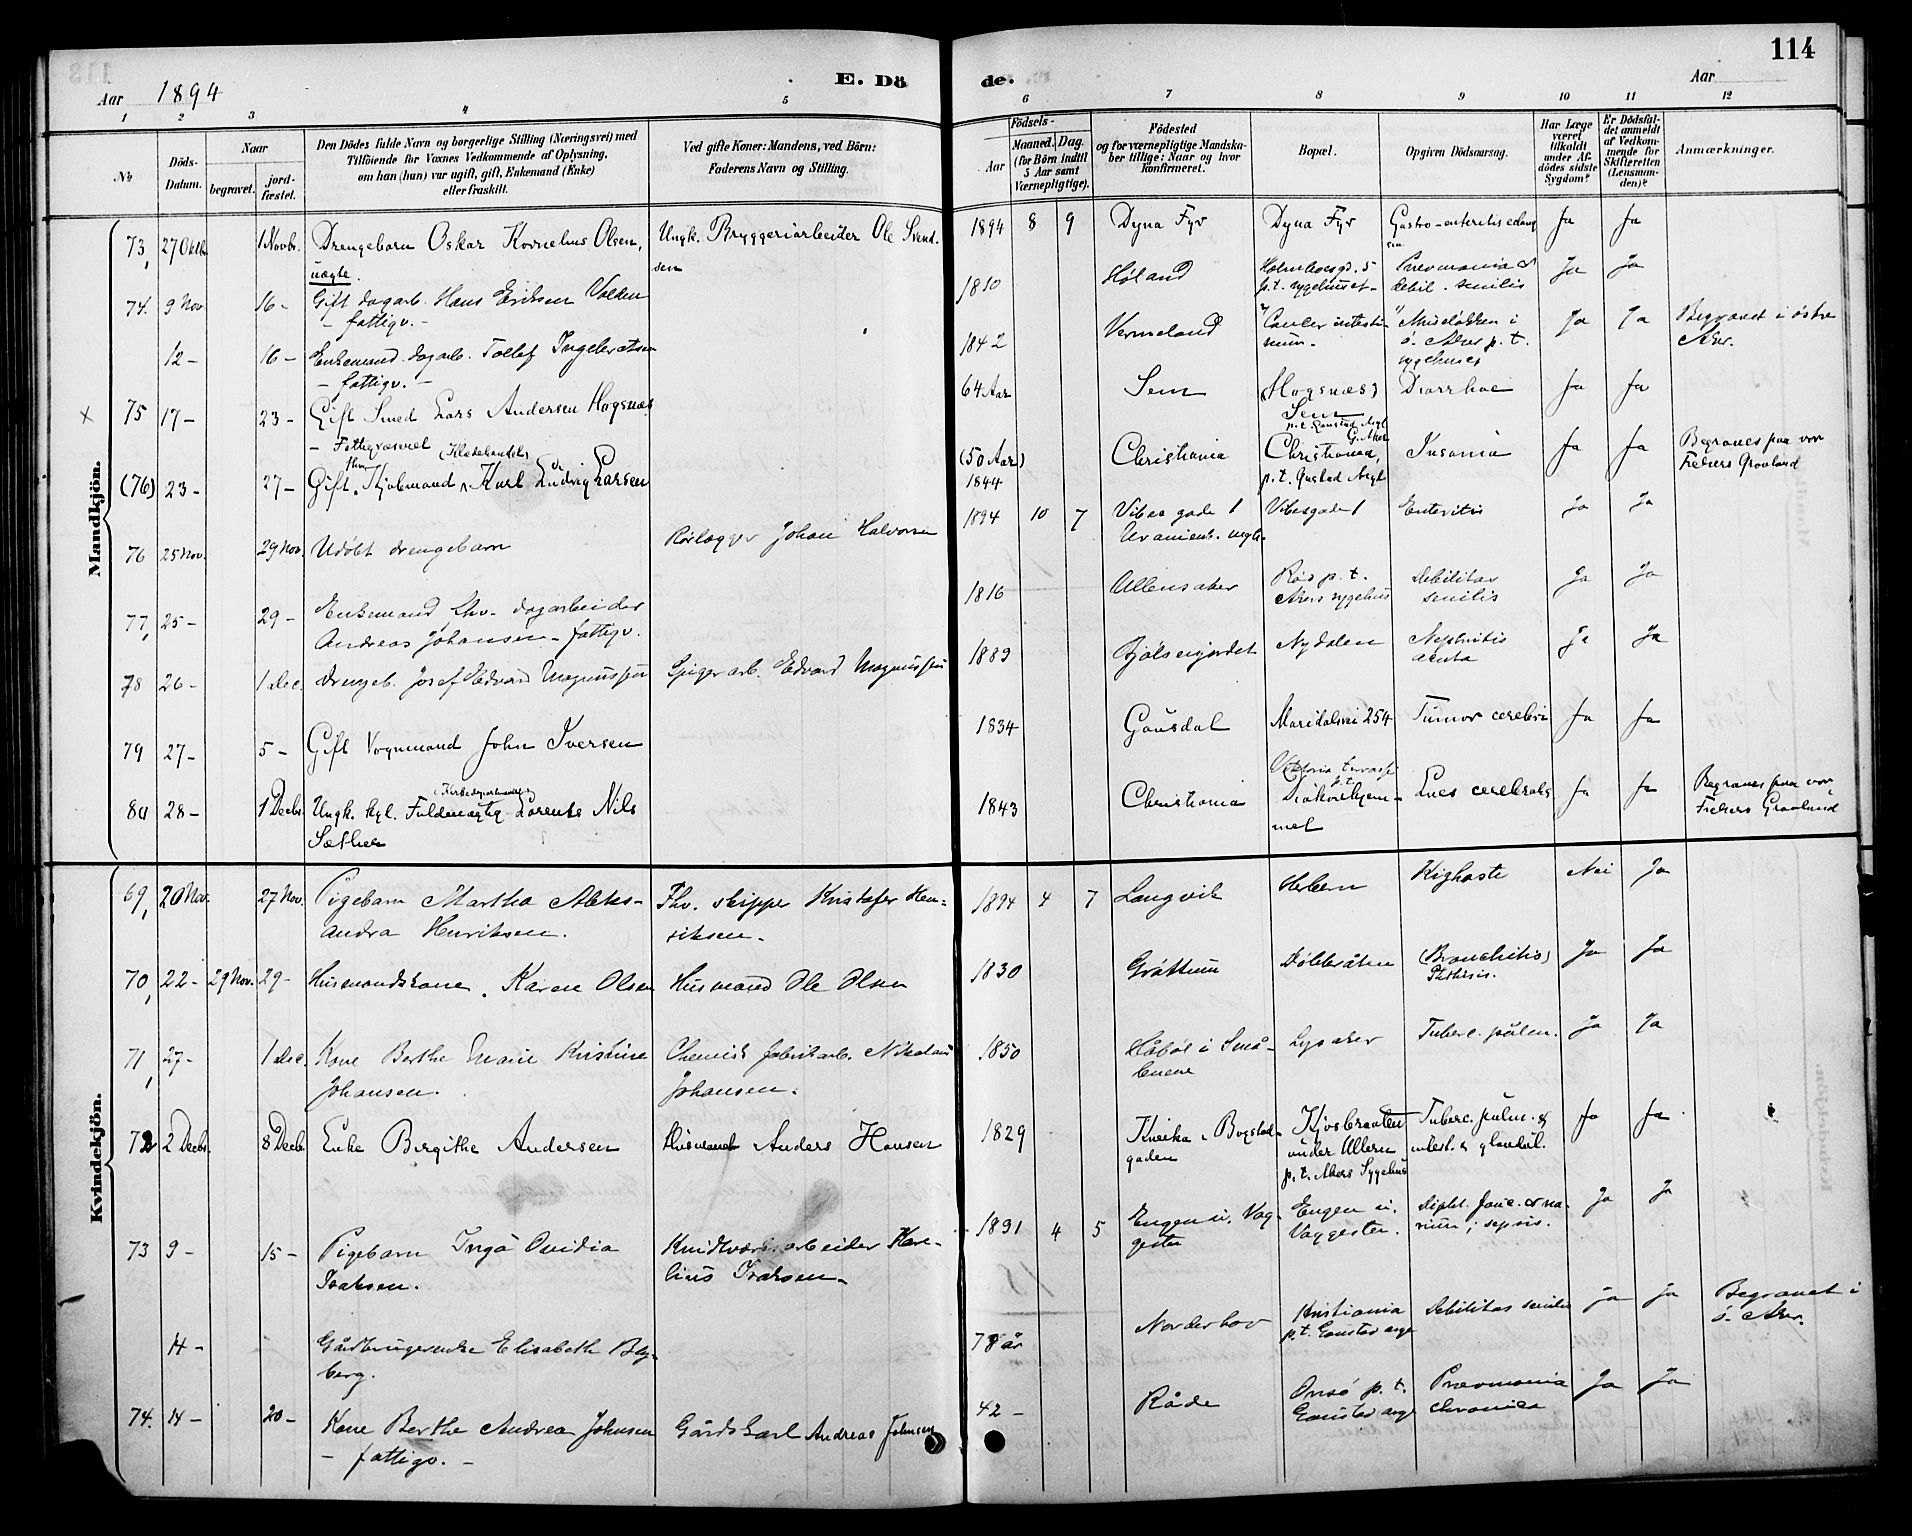 114
Aar 1894
E. Dö de.
Aar
1 2 3 4 5 6 7 8 9 10 11 12
No
Döds-Datum.
Naar
begravet.
jord-fæstet.
Den Dödes fulde Navn og borgerlige Stilling (Næringsvei) med
Tilföiende for Voxnes Vedkommende af Oplysning,
om han (hun) var ugift, gift, Enkemand (Enke)
eller fraskilt.
Ved gifte Koner: Mandens, ved Börn:
Faderens Navn og Stilling.
Födsels-
Aar
Maaned. Dag.
(for Börn indtil
5 Aar samt
Værnepligtige).
Födested
og for værnepligtige Mandska-
ber tillige: Naar og hvor
konfirmeret.
Bopæl.
Opgiven Dödsaarsag.
Har Læge
været
tilkaldt
under Af-
dödes sidste
Sygdom?
Er Dödsfal-
det anmeldt
af Vedkom-
mende for
Skifteretten
(Lensman-
den)?
Anmærkninger.
Mandkjön.
73, 27 Oktb. 1 Novb. Drengebarn Oskar Kornelius Olsen, Ungk. Bryggeriarbeider Ole Svend- 1894 8 9 Dyna Fyr Dyna Fyr Gastro-enteritis Ja Ja
uægte. sen
74. 9 Nov 16 - Gift dagarb. Hans Eriksen Volden 1810 Høland Holmboesgd. 5 Pneumonia & Ja Ja
- fattigv. - p.t. sygehuset - debil. senilis
12 - 16 - Enkemand dagarb. Tollef Ingebretsen 1842 Vermeland Cancer intesti- Muselökken i Ja Ja Begravet i östre
- fattigv. - num. ö. Aker p.t. Aker.
sygehuset
x 75 17 - 23 - Gift Smed Lars Andersen Hogsnæs 64 Aar Sem (Hogsnæs) Diarrhoe Ja Ja
- Fattigvæsenet Sem
p.t. Gaustad Asyl
(76) 23 - 27 - Gift Kjøbmand Karl Ludvig Larsen (50 Aar) 1844 Christiania Christiania, Insania Ja Ja Begraves paa vor
p.t. Gaustad Asyl Frelsers Gravlund
76 25 Nov. 29 Nov. Udøbt drengebarn Rørlægger Johan Halvorsen 1894 10 7 Vibes gade 1 Vibesgade 1 Enteritis Ja Ja
Uranienb. mgh.
77, 25 - 29 - Enkemand fhv. dagarbeider 1816 Ullensaker Røa p.t. Debilitas Ja Ja
Andreas Johansen - fattigv. Akers sygehus senilis
78 26 - 1 Dec. Drengeb. Josef Edvard Magnussen Spigerarb. Edvard Magnussen 1889 Bjølsenjordet Nydalen Nephritis Ja Ja
acuta
79 27 - 5 - Gift Vognmand John Iversen 1834 Gausdal Maridalsvei 254 Tumor cerebri Ja Ja
80 28 - 1 Decb. Ungk. kgl. Fuldmægtig Lorents Nils 1843 Christiania Viktoria terrasse p.t. Lues cerebralis Ja Ja Begraves paa vor
Sæther Diakonhjem- Frelsers Gravlund
met
Kvindekjön.
69, 20 Nov. 27 Nov. Pigebarn Martha Aleks- Fhv. skipper Kristofer Hen- 1894 4 7 Langvik Herbern Kighoste Nei Ja
andra Henriksen. riksen.
70, 22 - 29 Nov. 29 - Husmandskone Karen Olsen Husmand Ole Olsen 1830 Gröttum (Bronchitis) Ja Ja
Phthisis.
71, 27 - 1 Dec. Kone Berthe Marie Kristine Chemisk fabrikarb. Nikolai 1850 Håböl i Små- Lysaker Tuberc. pulm. Ja Ja
Johansen. Johansen. lenene
72 2 Decbr. 8 Decb Enke Birgithe Andersen Husmand Anders Hansen 1829 Kneika i Bogstad- Kjosbraaten Tuberc. pulm. & Ja Ja
gaden under Ullern intest. & glandul.
p.t. Akers Sygehus
73 9 - 15 - Pigebarn Inga Ovidia Kridtværksarbeider Kare- 1891 4 5 Engen u. Vag- Engen u. Dipht. fauc. & na- Ja Ja
Isaksen. lius Isaksen. gesten Vaggesten. rium; sepsis.
14 - Gårdbrugerenke Elisabeth Bly- 78 år Norderhov Kristiania Debilitas senilis Ja Ja Begravet i
berg. p.t. Gaustad asyl ö. Aker.
74. 14 - 20 - Kone Berthe Andrea Johnsen Gårdskarl Andreas Johnsen 42 - Råde Onsö p.t. Pneumonia Ja Ja
- fattigv. - Gaustad asyl chronica